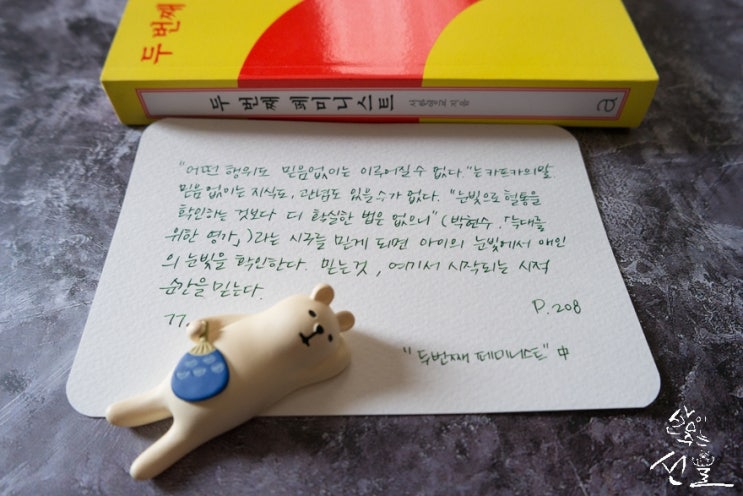 두 번째
두 번째 페미니스트 서한영교 지음 a
"어떤 행위도 믿음없이는 이루어질 수 없다."는 카프카의 말
믿음 없이는 지식도, 관념도 있을 수가 없다. "눈빛으로 혈통을
확인하는 것보다 더 확실한 법은 없으니" (박현수, 「늑대를
위한 영가」)라는 시구를 믿게 되면 아이의 눈빛에서 애인
의 눈빛을 확인한다. 믿는 것, 여기서 시작되는 시적
순간을 믿는다.
77. P. 208
"두번째 페미니스트" 中
선물